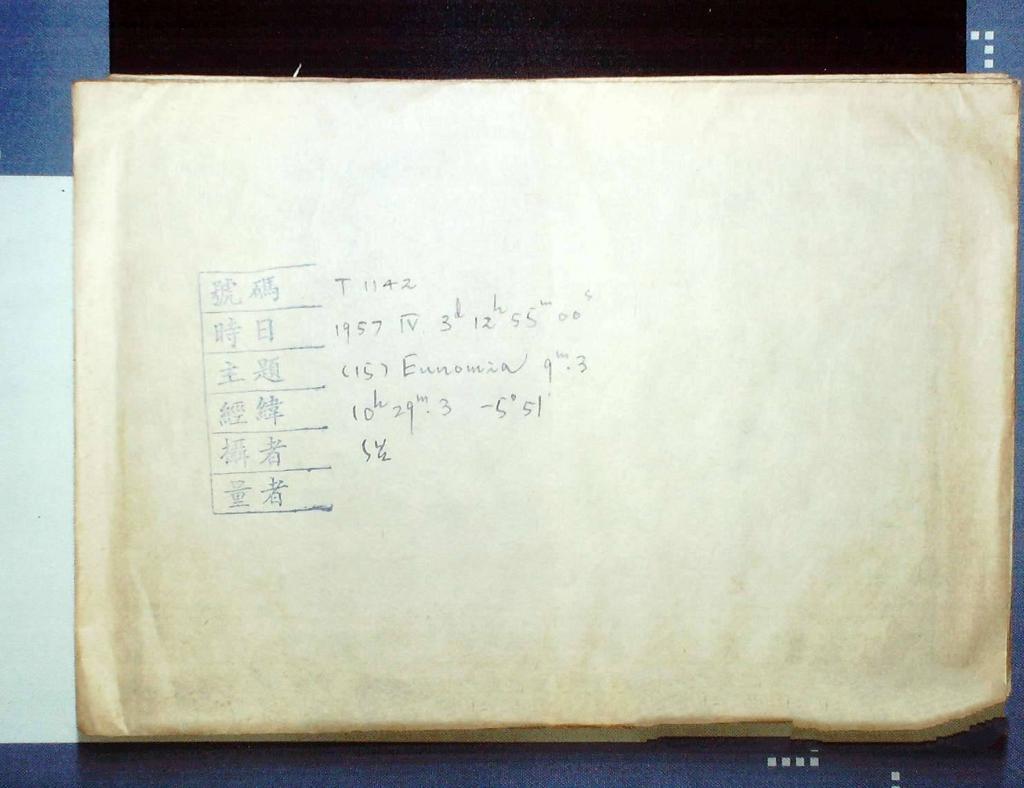 號碼 T 1142
時日 1957 IV 3ᵈ 12ʰ 55ᵐ 00ˢ
主題 (15) Eunomia 9ᵐ.3
經緯 10ʰ 29ᵐ.3 -5°51'
攝者
量者